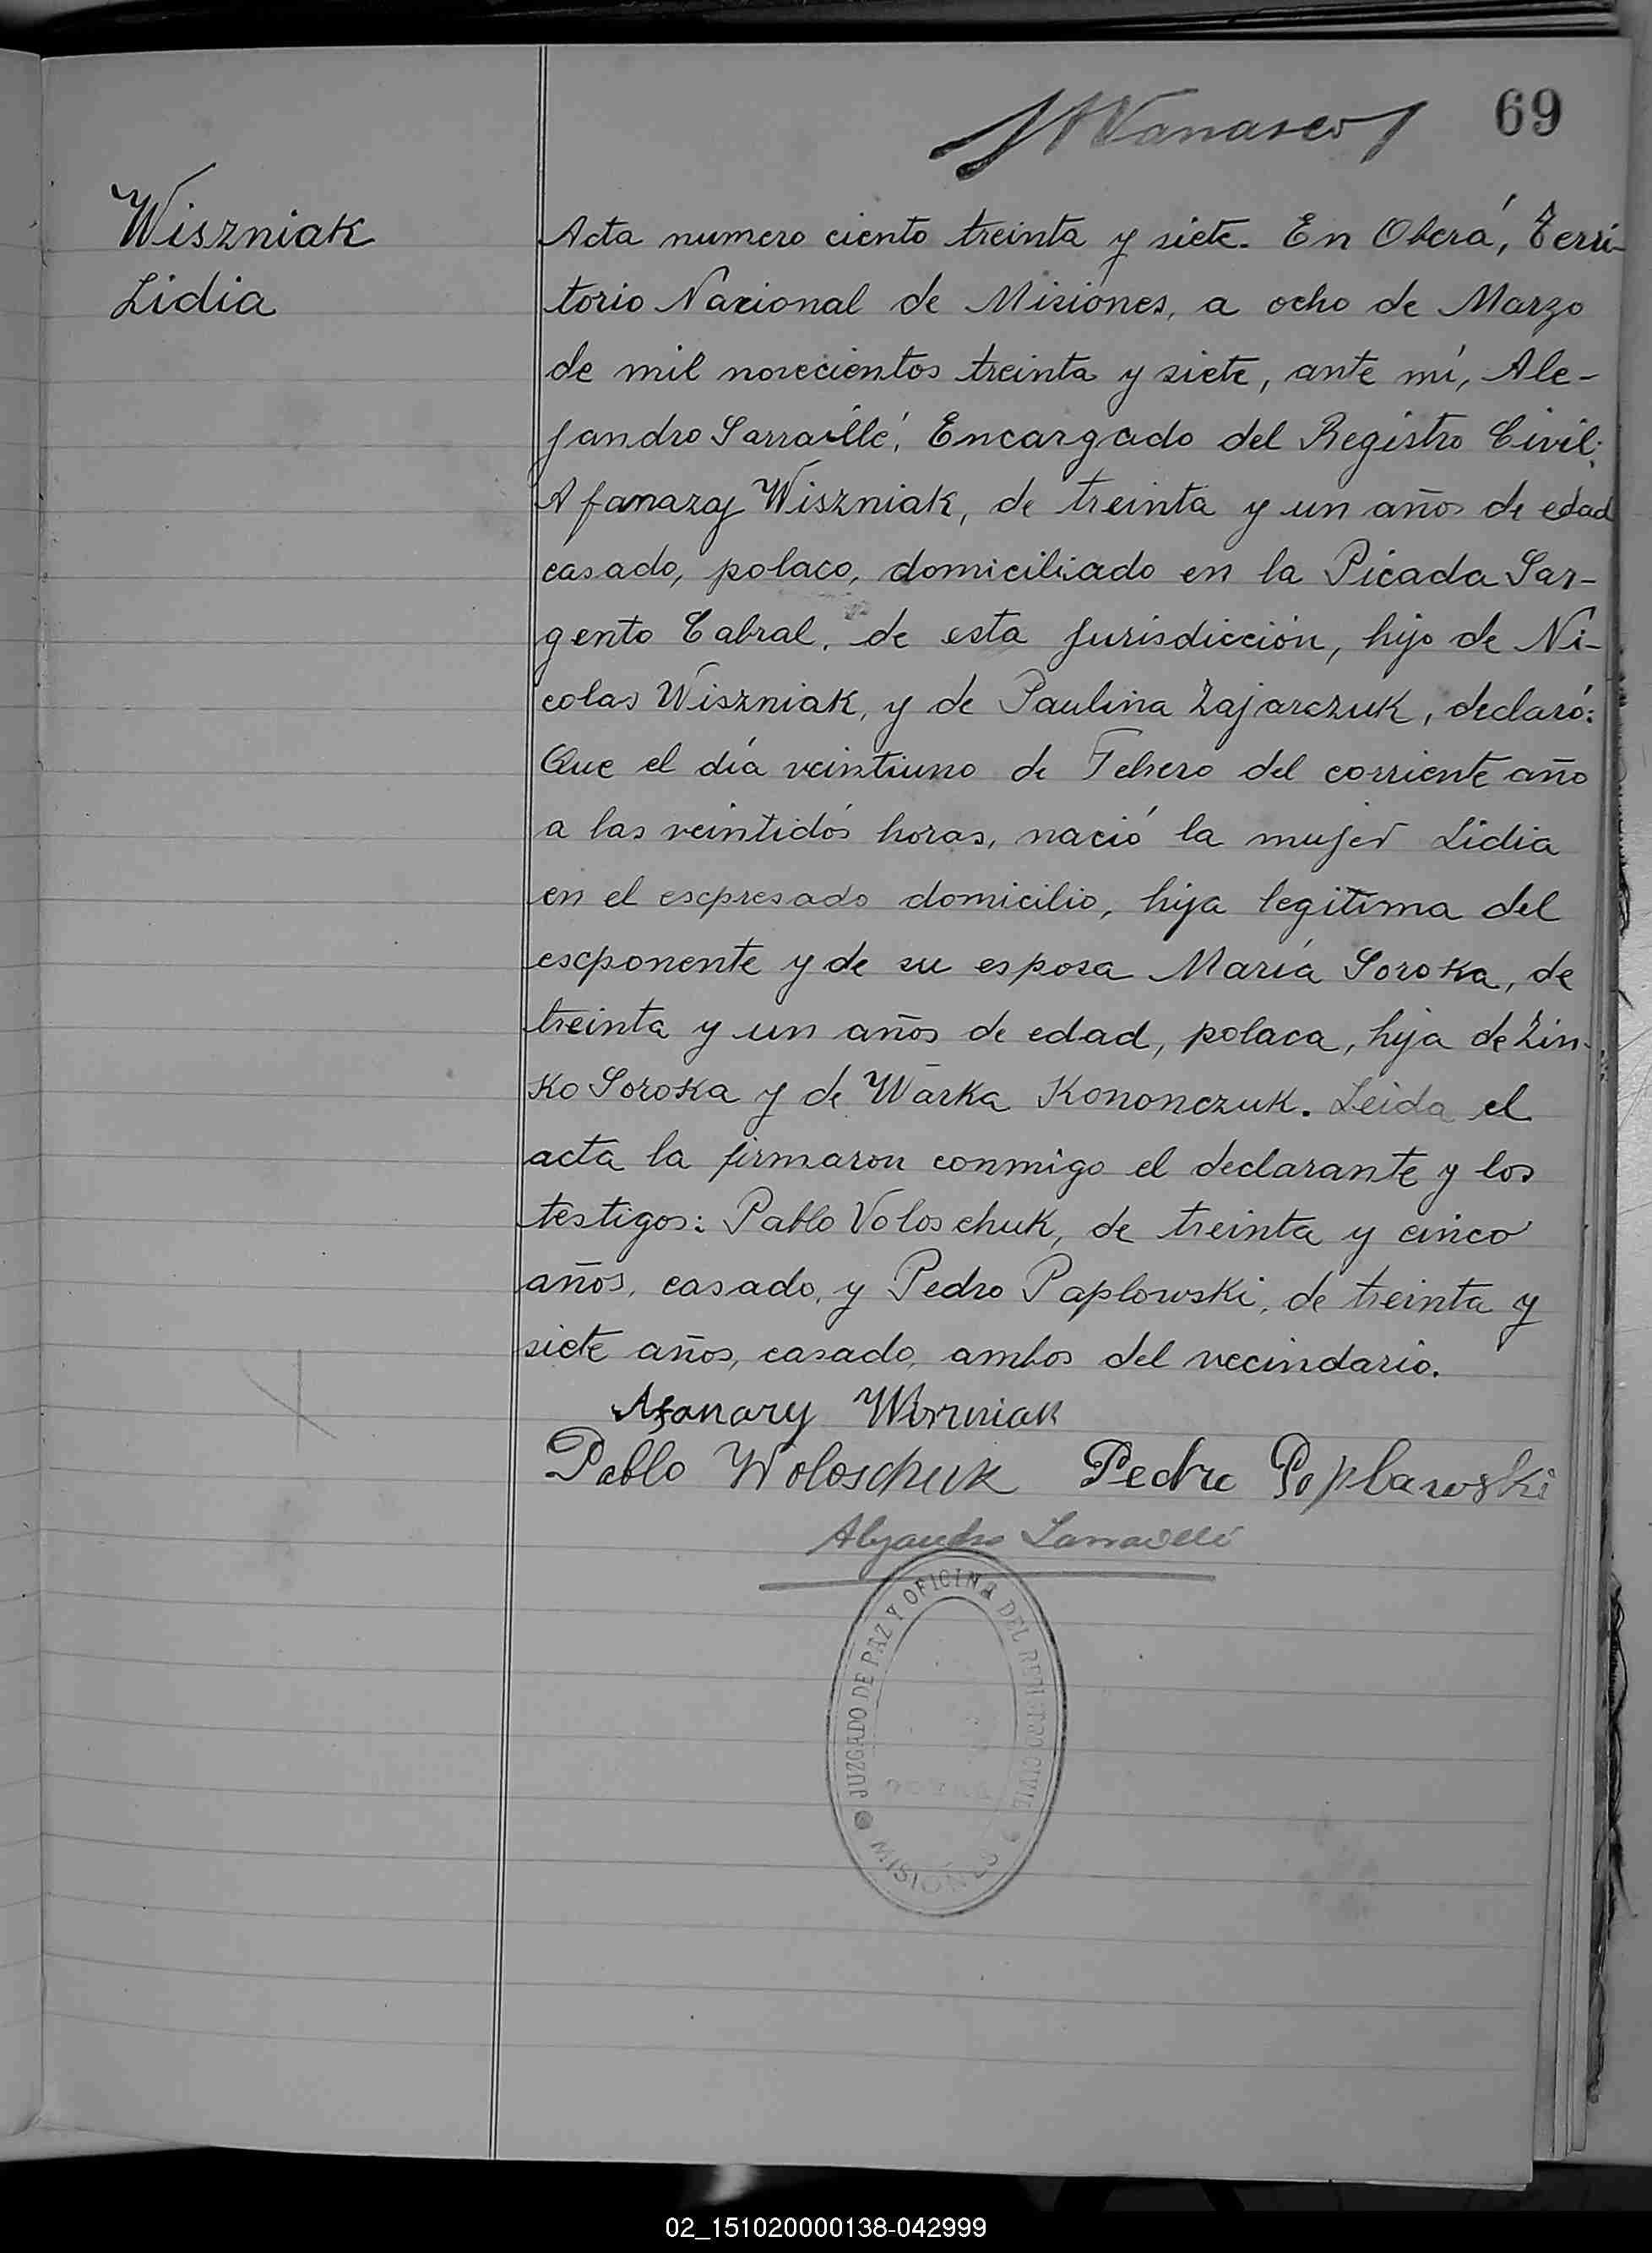 69
Wiszniak
Lidia
Acta numero ciento treinta y siete. En Oberá, Terri-
torio Nacional de Misiones, a ocho de Marzo
de mil novecientos treinta y siete, ante mí, Ale-
jandro Sarraillé, Encargado del Registro Civil;
Afanazy Wiszniak, de treinta y un años de edad
casado, polaco, domiciliado en la Picada Sar-
gento Cabral, de esta jurisdicción, hijo de Ni-
colas Wiszniak, y de Paulina Zajarczuk, declaró:
Que el día veintiuno de Febrero del corriente año
a las veintidós horas, nació la mujer Lidia
en el escpresado domicilio, hija legitima del
escponente y de su esposa María Soroka, de
treinta y un años de edad, polaca, hija de Zin-
ko Soroka y de Warka Kononczuk. Leida el
acta la firmaron conmigo el declarante y los
testigos: Pablo Voloschuk, de treinta y cinco
años, casado, y Pedro Paplowski, de treinta y
siete años, casado, ambos del vecindario.
Afanazy Wiszniak
Pablo Woloschuk Pedro Poplawski
Alejandro Sarraillé
JUZGADO DE PAZ Y OFICINA DEL REGISTRO CIVIL
MISIONES
02_151020000138-042999